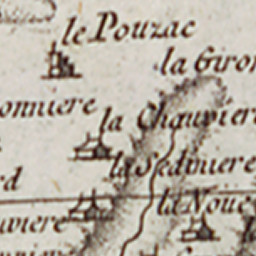 le Pouzac
la Giron
onniere
la Chauviere
la Sediniere
rd
la Noue
uviere